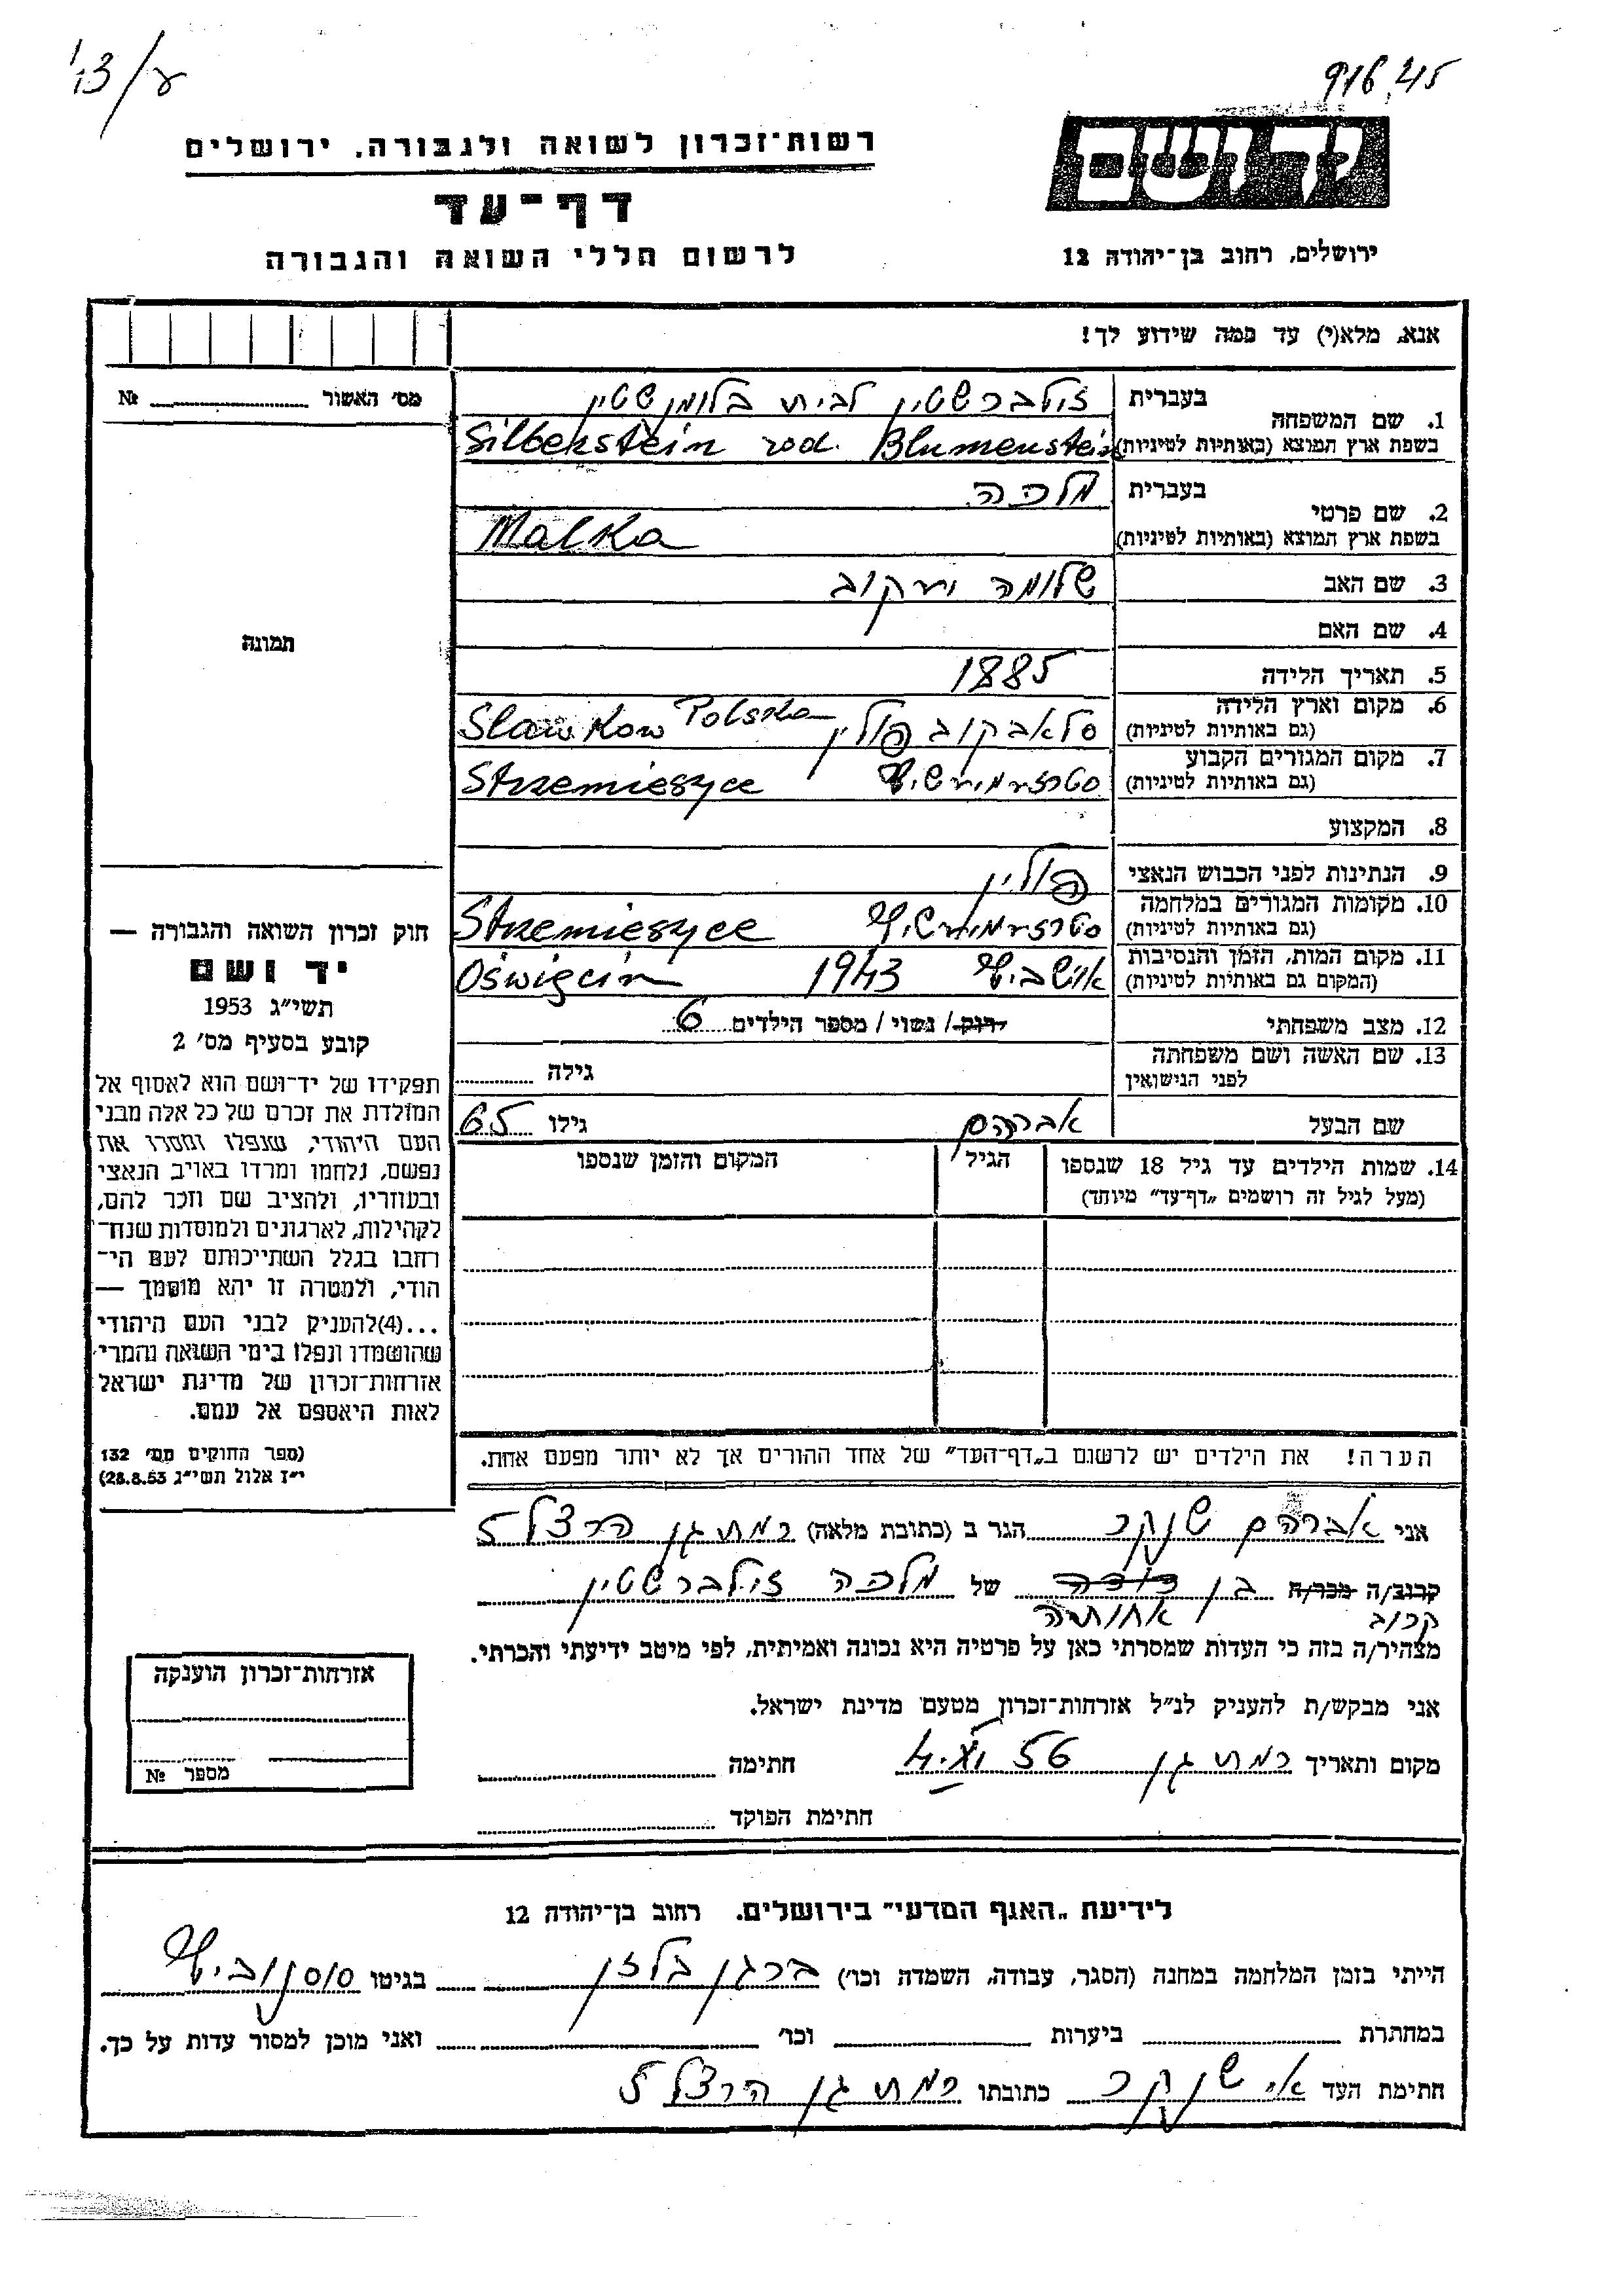 916.45
13/ע
יד ושם
ירושלים, רחוב בן־יהודה 12
רשות־זכרון לשואה ולגבורה, ירושלים
דף־עד
לרשום חללי השואה והגבורה
אנא, מלא(י) עד כמה שידוע לך!
מס' האשור № ........
תמונה
1. שם המשפחה
בעברית זילברשטין לבית בלומנשטין
בשפת ארץ המוצא (באותיות לטיניות) Silberstein rod. Blumenstein
2. שם פרטי
בעברית מלכה
בשפת ארץ המוצא (באותיות לטיניות) Malka
3. שם האב שלומה יעקוב
4. שם האם
5. תאריך הלידה 1885
6. מקום וארץ הלידה סלאבקוב פולין
(גם באותיות לטיניות) Sławkow Polska
7. מקום המגורים הקבוע סטרזעמיעשיץ
(גם באותיות לטיניות) Strzemieszyce
8. המקצוע
9. הנתינות לפני הכבוש הנאצי פולין
10. מקומות המגורים במלחמה סטרזעמיעשיץ
(גם באותיות לטיניות) Strzemieszyce
11. מקום המות, הזמן והנסיבות אושביץ 1943
(המקום גם באותיות לטיניות) Oświęcim
12. מצב משפחתי רוק / נשוי / מספר הילדים 6
13. שם האשה ושם משפחתה
לפני הנישואין גילה ........
שם הבעל אברהם גילו 65
14. שמות הילדים עד גיל 18 שנספו
(מעל לגיל זה רושמים „דף־עד” מיוחד)
הגיל
המקום והזמן שנספו
הערה! את הילדים יש לרשום ב„דף־העד” של אחד ההורים אך לא יותר מפעם אחת.
חוק זכרון השואה והגבורה —
יד ושם
תשי״ג 1953
קובע בסעיף מס' 2
תפקידו של יד־ושם הוא לאסוף אל
המולדת את זכרם של כל אלה מבני
העם היהודי, שנפלו ומסרו את
נפשם, נלחמו ומרדו באויב הנאצי
ובעוזריו, ולהציב שם וזכר להם,
לקהילות, לארגונים ולמוסדות שנח־
רבו בגלל השתייכותם לעם הי־
הודי, ולמטרה זו יהא מוסמך —
...(4)להעניק לבני העם היהודי
שהושמדו ונפלו בימי השואה והמרי
אזרחות־זכרון של מדינת ישראל
לאות היאספם אל עמם.
(ספר החוקים מס' 132
י״ז אלול תשי״ג 28.8.53)
אני אברהם שנקר הגר ב (כתובת מלאה) רמת גן הרצל 5
קרוב/ה מכר/ה בן דודה של מלכה זילברשטין
קרוב אחותה
מצהיר/ה בזה כי העדות שמסרתי כאן על פרטיה היא נכונה ואמיתית, לפי מיטב ידיעתי והכרתי.
אני מבקש/ת להעניק לנ״ל אזרחות־זכרון מטעם מדינת ישראל.
מקום ותאריך רמת גן חתימה ........
חתימת הפוקד ........
אזרחות־זכרון הוענקה
מספר №
לידיעת „האגף המדעי” בירושלים. רחוב בן־יהודה 12
הייתי בזמן המלחמה במחנה (הסגר, עבודה, השמדה וכו') ברגן בלזן בגיטו סוסנוביץ
במחתרת ........ ביערות ........ וכו' ........ ואני מוכן למסור עדות על כך.
חתימת העד א. שנקר כתובתו רמת גן הרצל 5